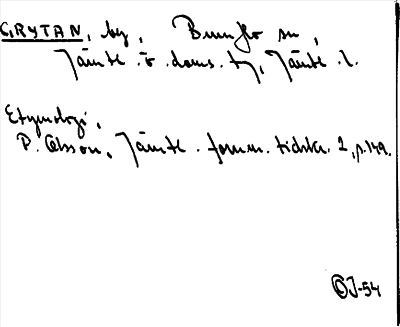 GRYTAN, by, Brunflo sn,
Jämtl. ö. doms. tg, Jämtl. l.
Etymologi,
P. Olsson, Jämtl. fornm. tidskr. 2, p. 149.
OJ-54